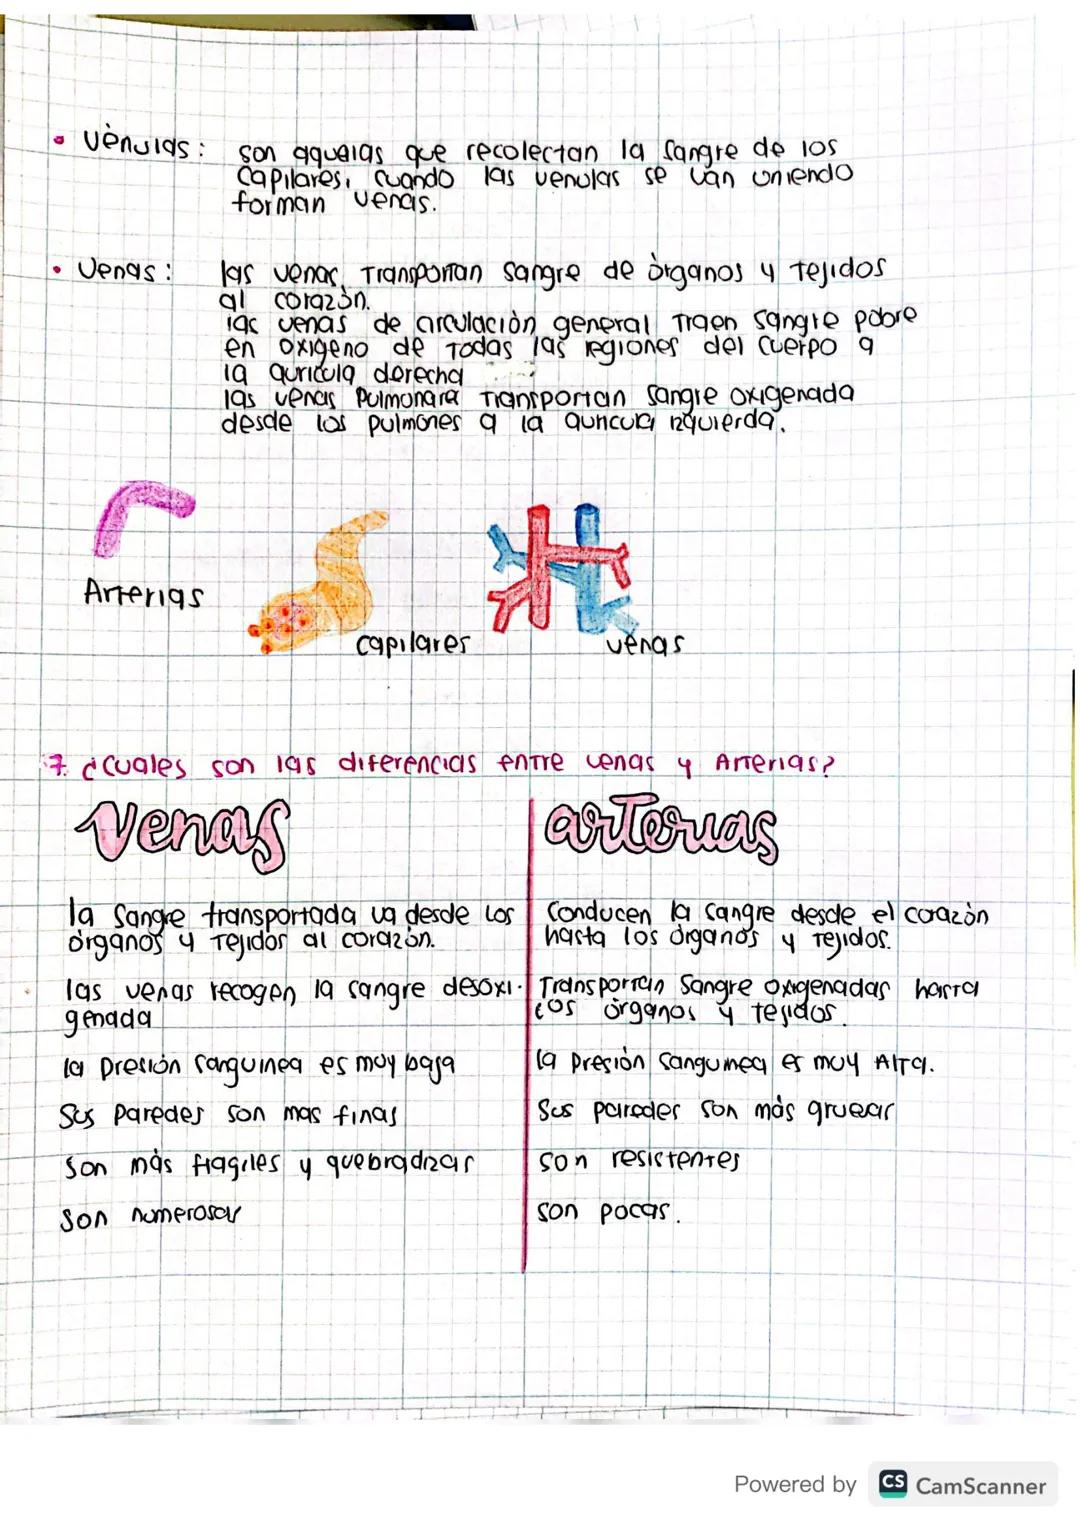 • Vènulas: son aquelas que recolectan la sangre de los
capilares, cuando las venulas se van uniendo
forman venas.
• Venas: las venas, Transportan sangre de òrganos y tejidos
al corazòn.
las venas de circulaciòn general Traen sangre pobre
en oxigeno de Todas las regiones del cuerpo a
la auricula derecha
las venas Pulmonara Transportan sangre oxigenada
desde los pulmones a la auricula izquierda.
Arterias
capilares
venas
7. ¿Cuales son las diferencias entre venas y Arterias?
Venas
arterias
la Sangre transportada va desde los
òrganos y Tejidos al corazòn.
Conducen la sangre desde el corazòn
hasta los òrganos y Tejidos.
las venas recogen la sangre desoxi-
genada
Transportan Sangre oxigenadas hasta
los òrganos y tejidos.
la Presiòn sanguinea es muy baja
la Presiòn Sanguinea es muy Alta.
Sus Paredes son mas finas
Sus paredes son màs gruesas
Son màs fragiles y quebradizas
son resistentes
Son numerosas
son pocas.
Powered by CS CamScanner